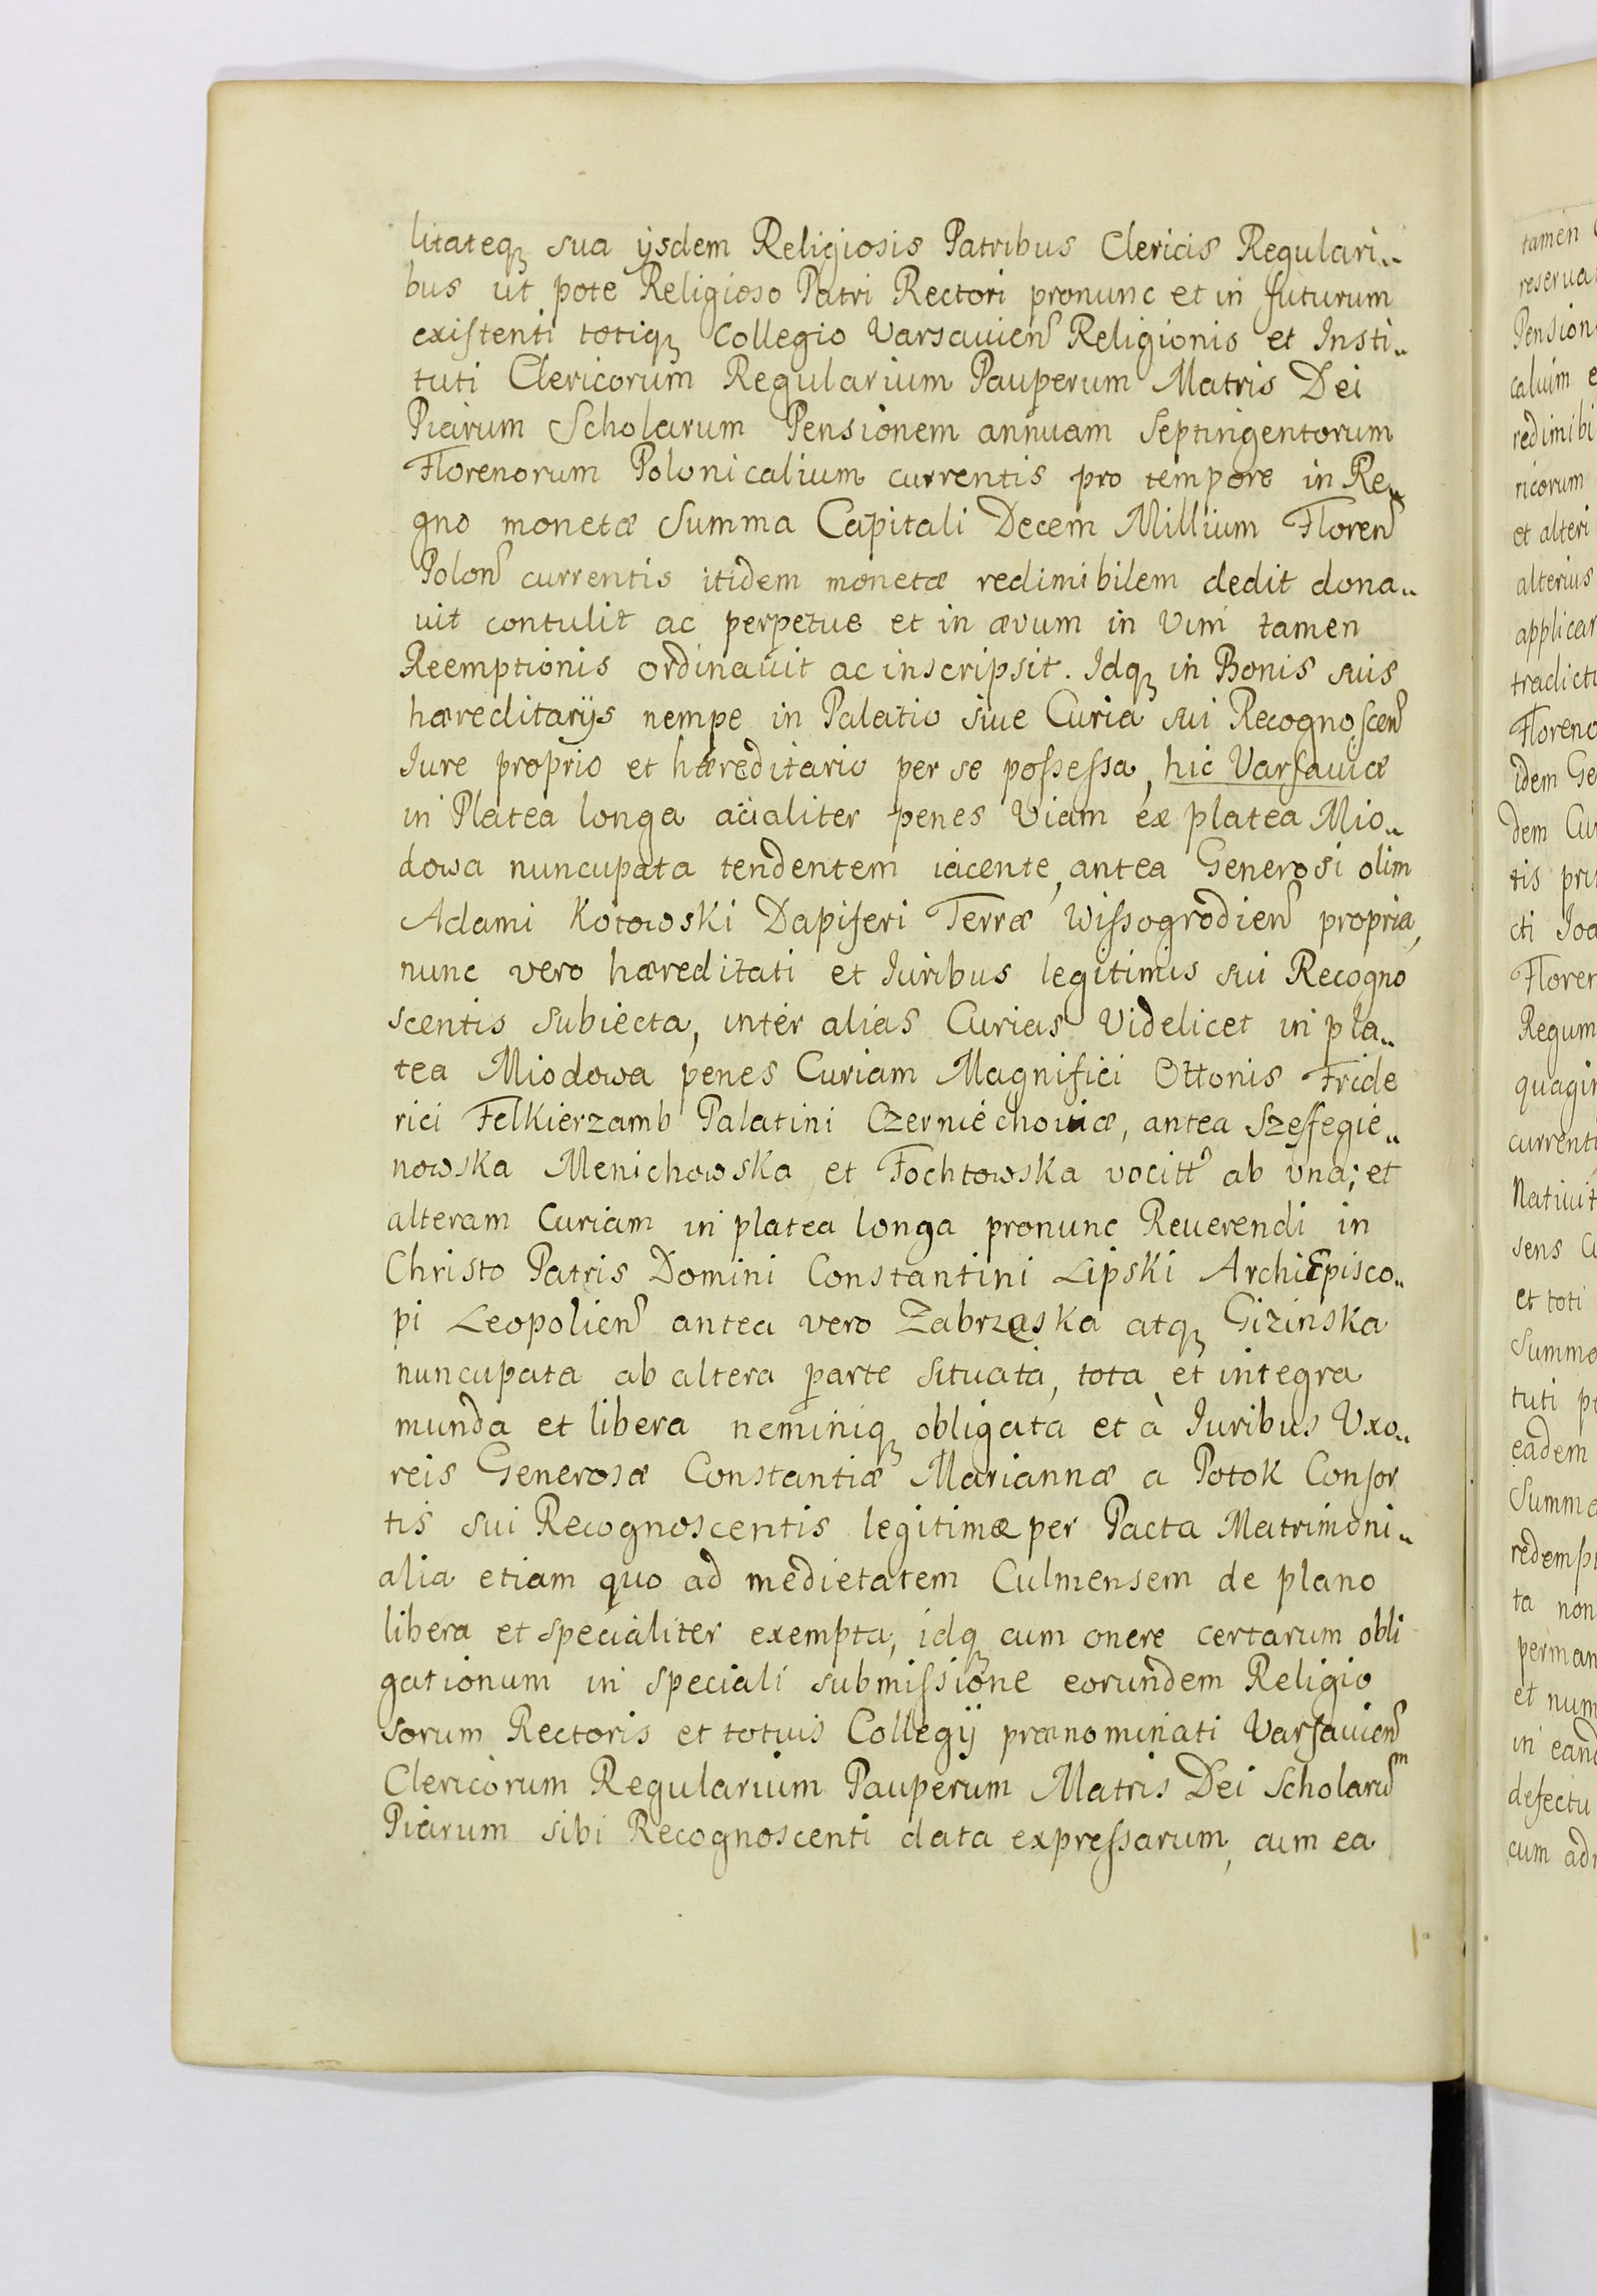 litateq₃ sua ijsdem Religiosis Patribus Clericis Regulari„
bus ut pote Religioso Patri Rectori pronunc et in futurum
existenti totiq₃ Collegio Varsauien̄ Religionis et Insti„
tuti Clericorum Regularium Pauperum Matris Dei
Piarum Scholarum Pensionem annuam Septingentorum
Florenorum Polonicalium currentis pro tempore in Re„
gno monetæ Summa Capitali Decem Millium Floren̄
Polon̄ currentis itidem monetæ redimibilem dedit dona„
uit contulit ac perpetue et in ævum in Vim tamen
Reemptionis ordinauit ac inscripsit. Idq₃ in Bonis suis
hæreditarijs nempe in Palatio siue Curia sui Recognoscen̄
Iure proprio et hæreditario per se possessa, hic Varsauiæ
in Platea longa acialiter penes Viam ex platea Mio„
dowa nuncupata tendentem iacente, antea Generosi olim
Adami Kotowski Dapiferi Terræ Wissogrodien̄ propria,
nunc vero hæreditati et Iuribus legitimis sui Recogno
scentis subiecta, inter alias Curias Videlicet in pla„
tea Miodowa penes Curiam Magnifici Ottonis Fride
rici Felkierzamb Palatini Czerniechouiæ, antea Szeffegie„
nowska Menichowska et Fochtowska vocitt̄ ab vna; et
alteram Curiam in platea longa pronunc Reuerendi in
Christo Patris Domini Constantini Lipski ArchiEpisco„
pi Leopolien̄ antea vero Zabrzeska atq₃ Gizinska
nuncupata ab altera parte situata, tota et integra
munda et libera neminiq₃ obligata et à Iuribus Uxo„
reis Generosæ Constantiæ Mariannæ a Potok Consor
tis sui Recognoscentis legitimæ per Pacta Matrimoni„
alia etiam quo ad medietatem Culmensem de plano
libera et specialiter exempta, idq₃ cum onere certarum obli
gationum in speciali submissione eorundem Religio
sorum Rectoris et totius Collegij prænominati Varsauien̄
Clericorum Regularium Pauperum Matris Dei Scholarūm
Piarum sibi Recognoscenti data expressarum, cum ea
tamen
reserua
Pension
caluim e
redimibi
ricorum
et alteri
alterius
applicar
tradicti
Floreno
idem Ge
dem Cur
tis pri
cti Joa
Floren
Regum
quagin
currenti
Natiuit
sens
et toti
Summa
tuti p
eadem
Summa
redempt
ta non
perman
et num
in eand
defectu
cum adi